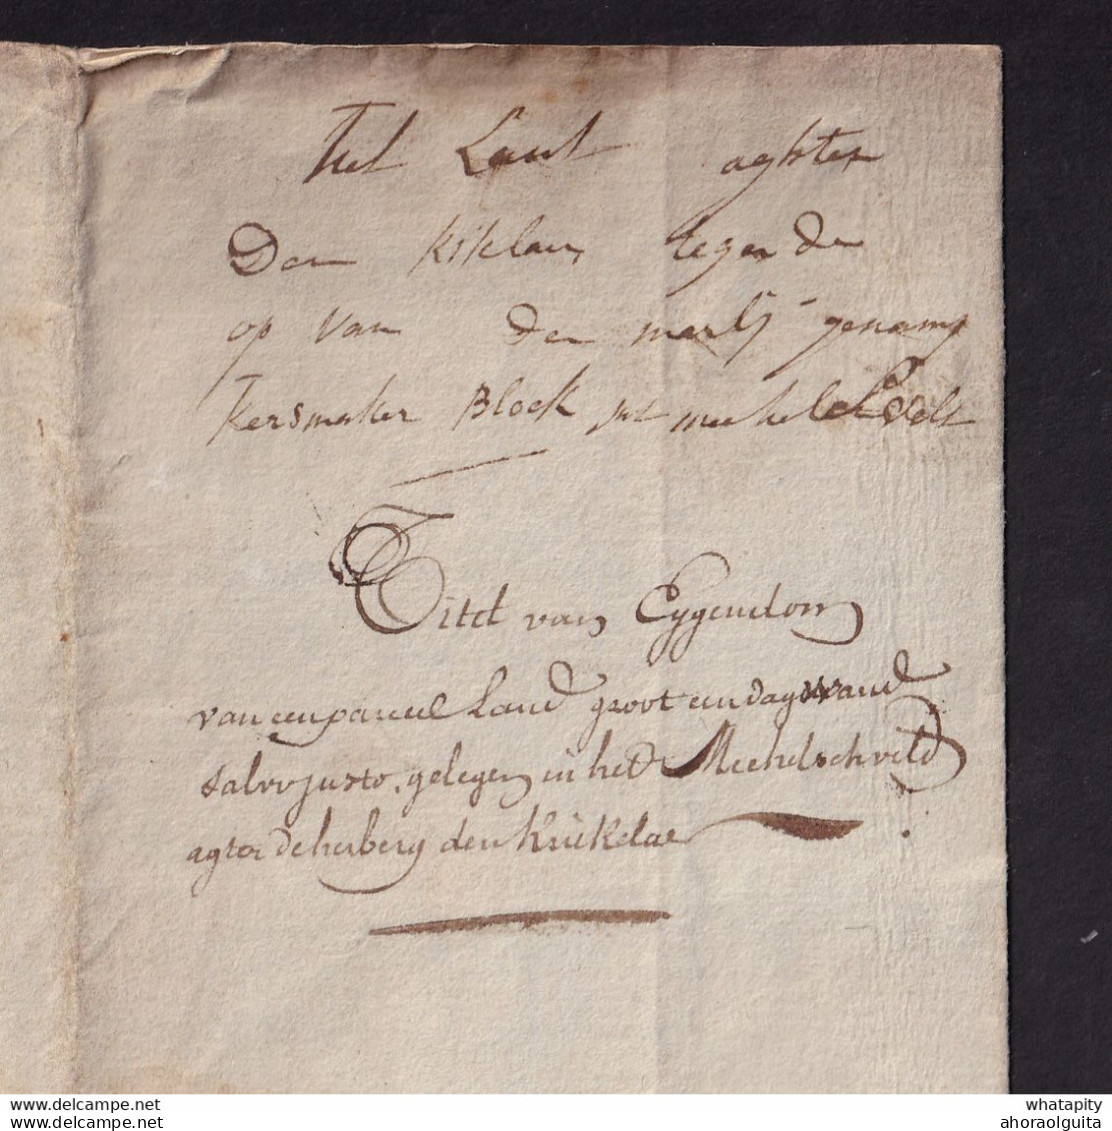 Het Lant aghter
Den Kiklaen tegen de
op van den marly genamp
Kersmaker Block Mechelsch Velt
Titel van Eygendom
van een parceel Land groot een dagwand
salvo justo, gelegen in het Mechelsch veld
agter de herberg den Kriekelae
delcampe.net
whatapity
ahoraolguita